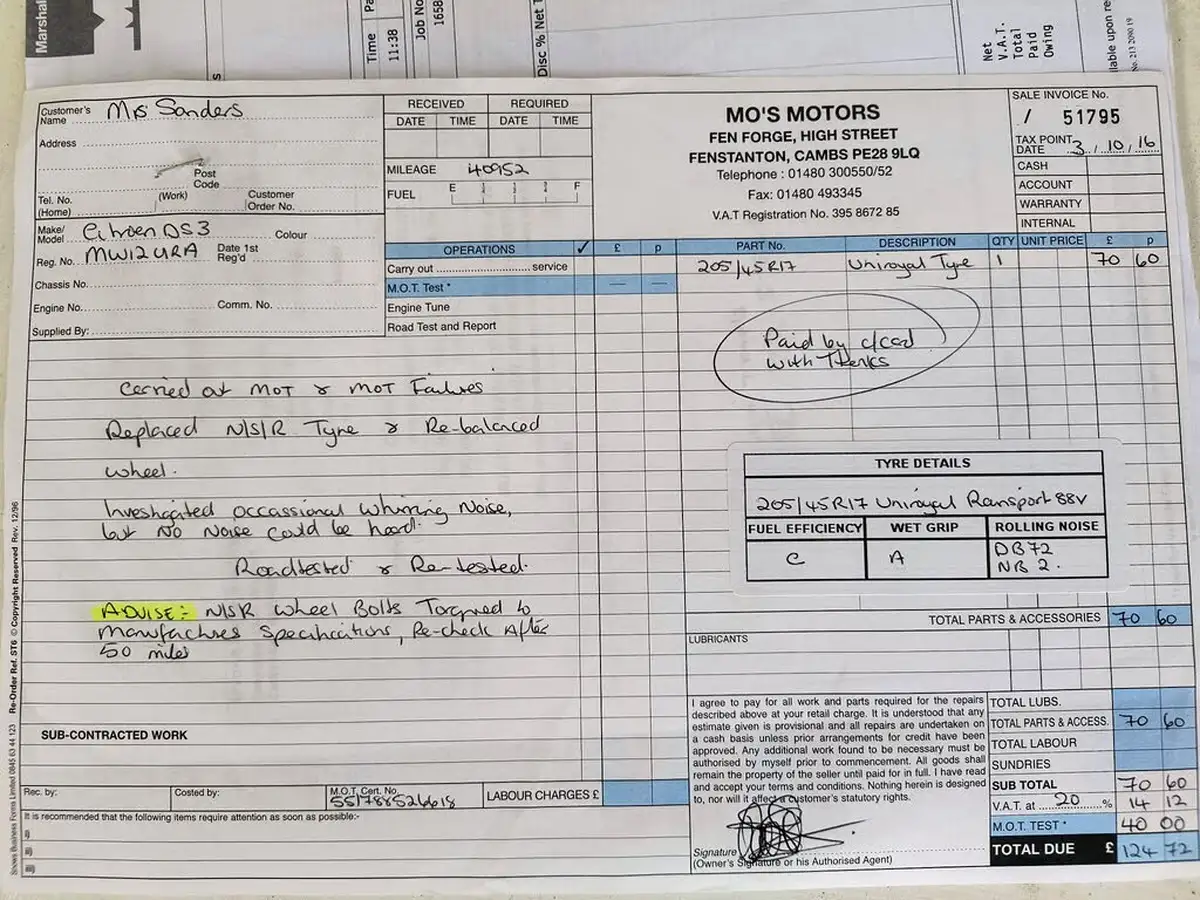 Marshal
Time
11:38
Job No
1658
Disc %: Net T
Net
V.A.T.
Total
Paid
Owing
lable upon re
No. 213 2090 19
Customer's Name Mrs Sanders
Address
Post Code
Tel. No. (Work) Customer
(Home) Order No.
Make/ Model Citroen DS3 Colour
Reg. No. MW12URA Date 1st Reg'd
Chassis No.
Engine No. Comm. No.
Supplied By:
RECEIVED REQUIRED
DATE TIME DATE TIME
MILEAGE 40952
FUEL E F
MO'S MOTORS
FEN FORGE, HIGH STREET
FENSTANTON, CAMBS PE28 9LQ
Telephone : 01480 300550/52
Fax: 01480 493345
V.A.T Registration No. 395 8672 85
SALE INVOICE No.
/ 51795
TAX POINT DATE 3 / 10 / 16
CASH
ACCOUNT
WARRANTY
INTERNAL
OPERATIONS ✓ £ p
Carry out service
M.O.T. Test * — —
Engine Tune
Road Test and Report
PART No. DESCRIPTION QTY UNIT PRICE £ p
205/45R17 Uniroyal Tyre 1 70 60
Paid by c/card
with Thanks
Carried out MOT & MOT Failures
Replaced N/S/R Tyre & Re-balanced
wheel.
Investigated occassional whirring Noise,
but No Noise could be heard.
Roadtested & Re-tested.
ADVISE:- N/S/R wheel Bolts Torqued to
manufactures Specifications, Re-check After
50 miles
TYRE DETAILS
205/45R17 Uniroyal Ransport 88V
FUEL EFFICIENCY WET GRIP ROLLING NOISE
C A DB72
NB 2.
TOTAL PARTS & ACCESSORIES 70 60
LUBRICANTS
SUB-CONTRACTED WORK
I agree to pay for all work and parts required for the repairs
described above at your retail charge. It is understood that any
estimate given is provisional and all repairs are undertaken on
a cash basis unless prior arrangements for credit have been
approved. Any additional work found to be necessary must be
authorised by myself prior to commencement. All goods shall
remain the property of the seller until paid for in full. I have read
and accept your terms and conditions. Nothing herein is designed
to, nor will it affect a customer's statutory rights.
Signature
(Owner's Signature or his Authorised Agent)
TOTAL LUBS.
TOTAL PARTS & ACCESS. 70 60
TOTAL LABOUR
SUNDRIES
SUB TOTAL 70 60
V.A.T. at 20 % 14 12
M.O.T. TEST * 40 00
TOTAL DUE £ 124 72
Rec. by: Costed by: M.O.T. Cert. No. 551788526618 LABOUR CHARGES £
It is recommended that the following items require attention as soon as possible:-
i)
ii)
iii)
Snows Business Forms Limited 0845 63 44 123 Re-Order Ref. ST6 © Copyright Reserved Rev. 12/96